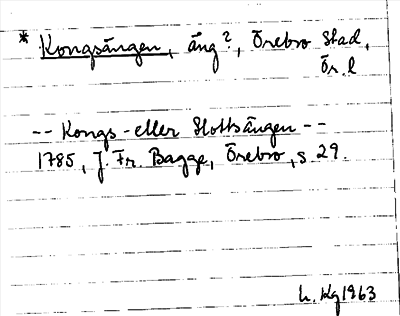 * Kongsängen, äng?, Örebro Stad,
Ör. l
-- Kongs- eller Slottsängen --
1785, J. Fr. Bagge, Örebro, s 29.
1963